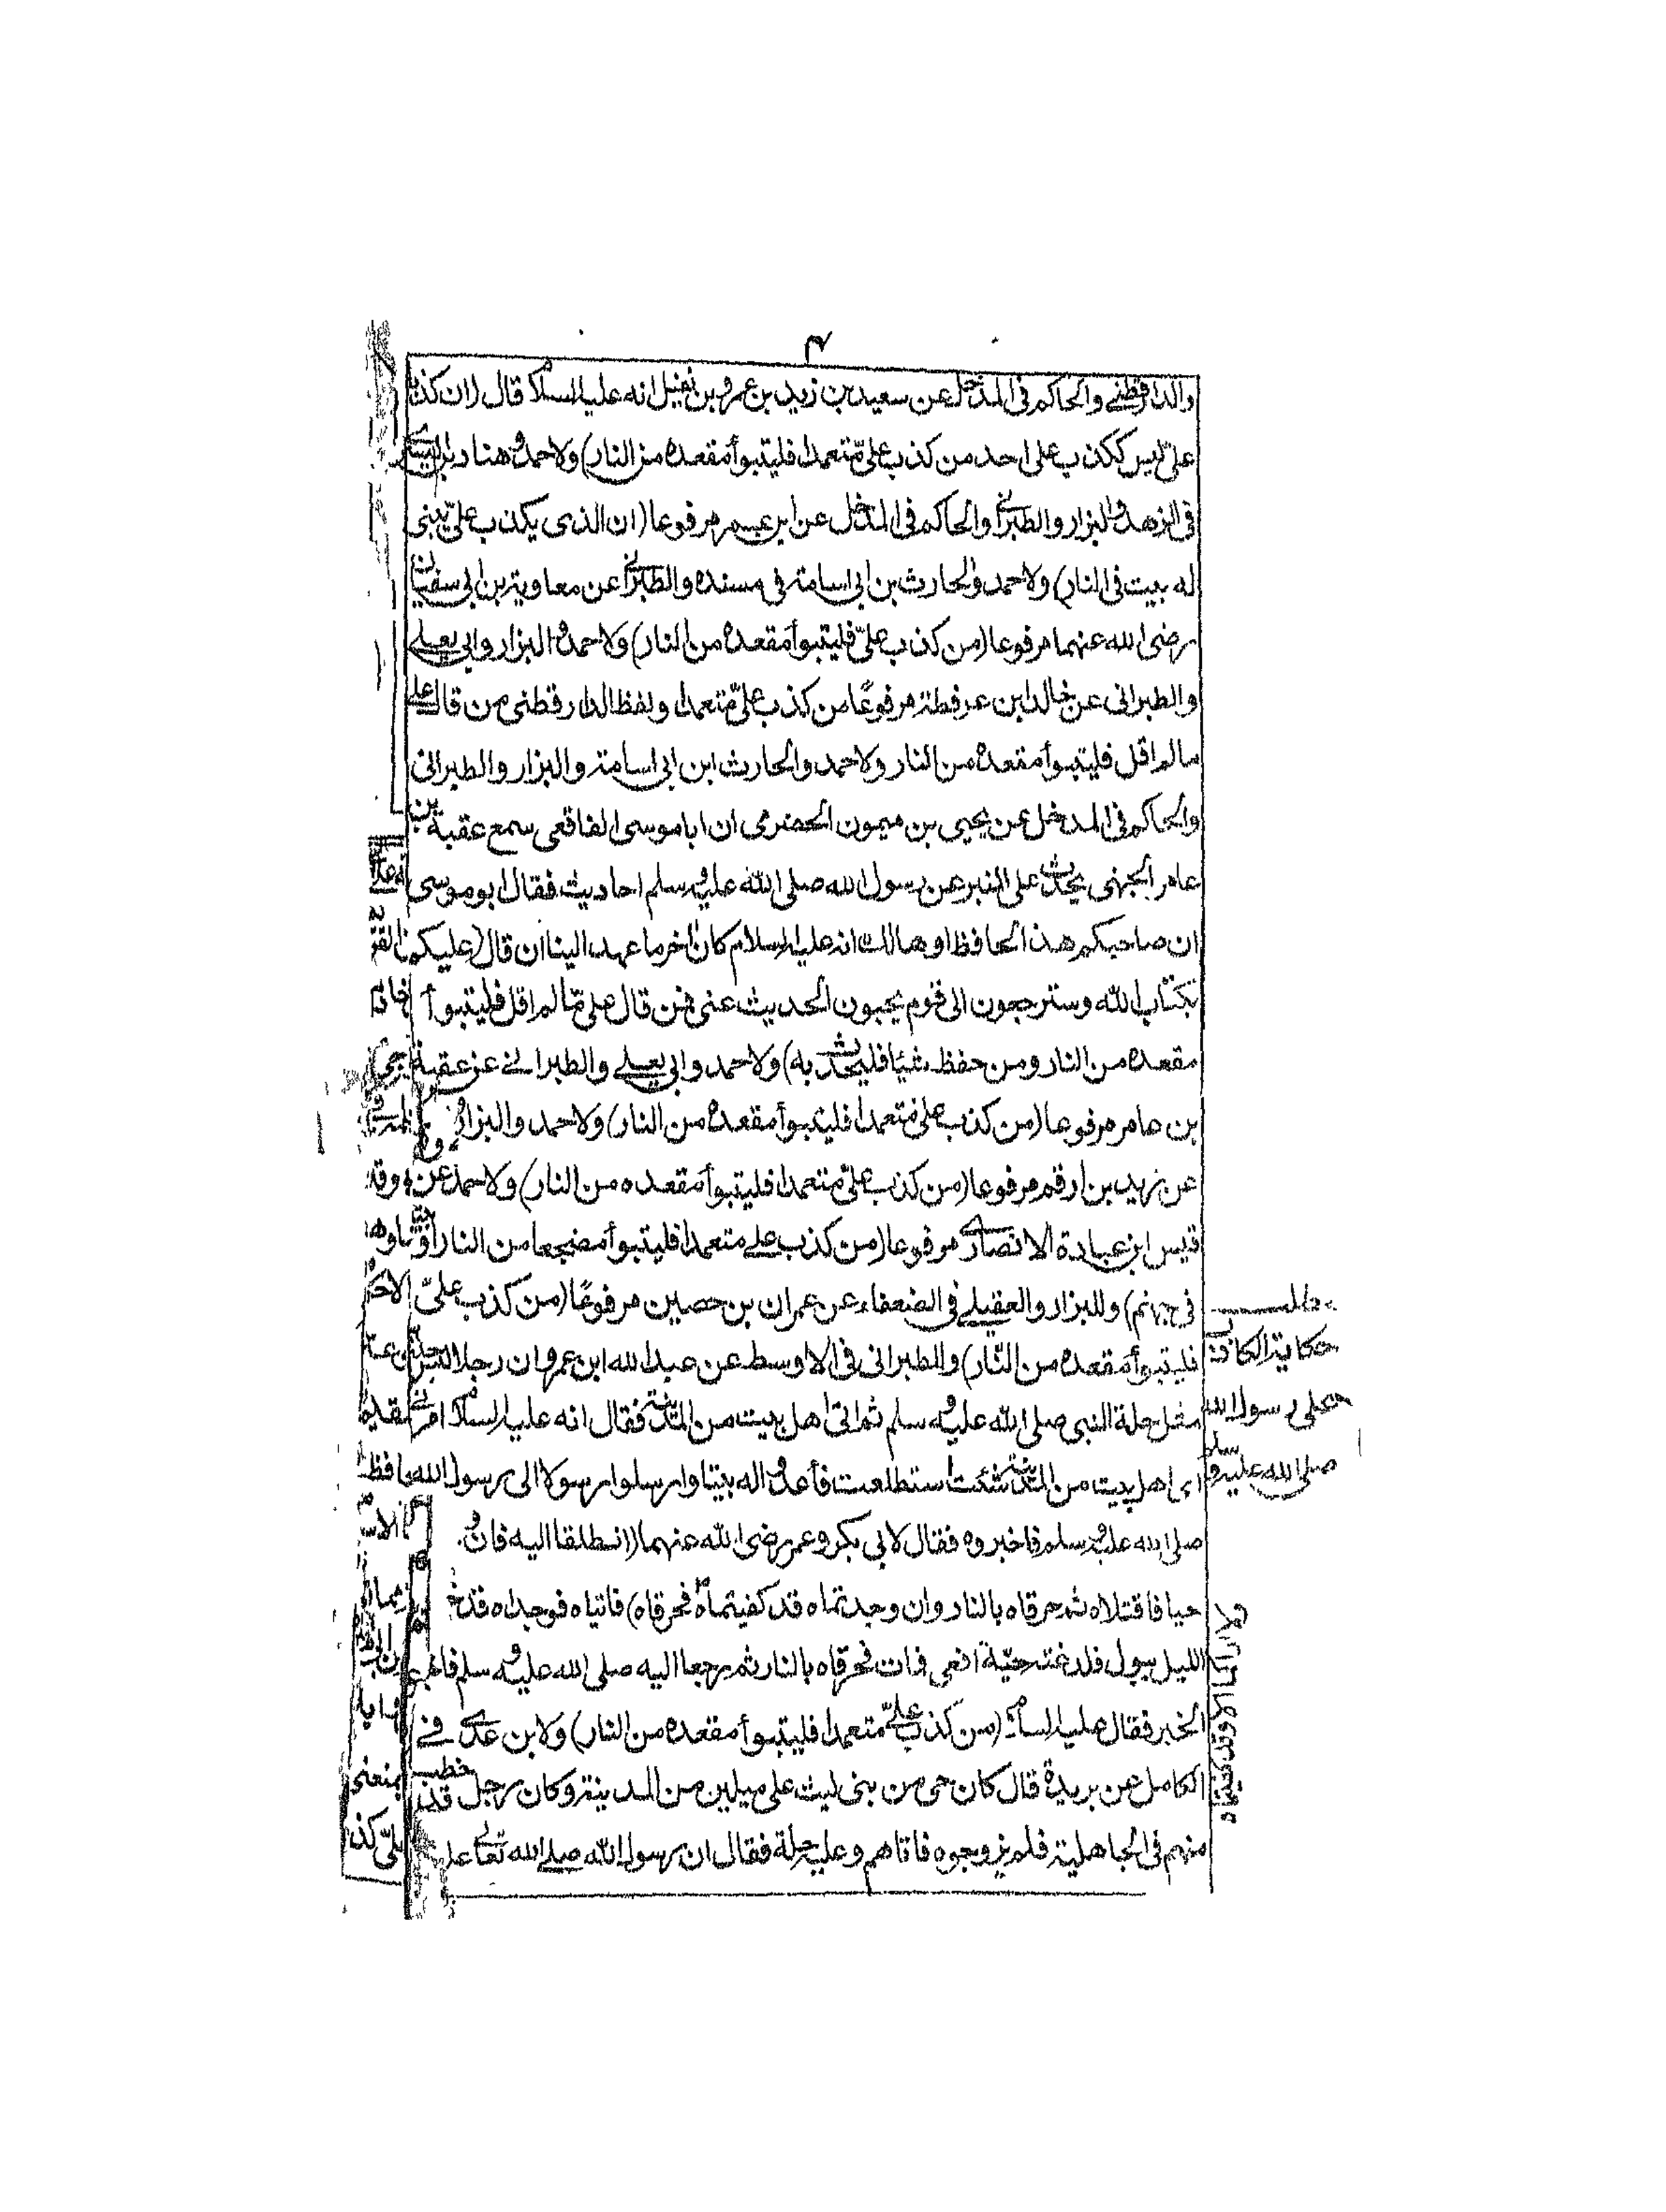 ٣
والدارقطني والحاكم في المدخل عن سعيد بن زيد بن عمرو بن نفيل انه عليه السلام قال (ان كذبا
علىّ ليس ككذب على احد من كذب علىّ متعمدا فليتبوأ مقعده من النار) ولاحمد وهناد بن السرى
في الزهد والبزار والطبراني والحاكم في المدخل عن ابن عمر مرفوعا (ان الذى يكذب علىّ يبنى
له بيت في النار) ولاحمد والحارث بن ابى اسامة فى مسنده والطبراني عن معاوية بن ابى سفيان
رضى الله عنهما مرفوعا (من كذب علىّ فليتبوأ مقعده من النار) ولاحمد والبزار وابى يعلى
والطبرانى عن خالد ابن عرفطة مرفوعًا من كذب علىّ متعمدا ولفظ الدارقطنى من قال على
مالم اقل فليتبوأ مقعده من النار ولاحمد والحارث ابن ابى اسامة والبزار والطبرانى
والحاكم فى المدخل عن يحيى بن ميمون الحضرمى ان اباموسى الغافقى سمع عقبة بن
عامر الجهنى يحدث على المنبر عن رسول الله صلى الله عليه وسلم احاديث فقال ابو موسى
ان صاحبكم هذا الحافظ او هالك انه عليه السلام كان اخر ما عهد الينا ان قال (عليكم
بكتاب الله وسترجعون الى قوم يحبون الحديث عنى فمن قال علىّ مالم اقل فليتبوأ
مقعده من النار ومن حفظ شيئا فليحدث به) ولاحمد وابى يعلى والطبرانى عن عقبة
بن عامر مرفوعا (من كذب علىّ متعمدا فليتبوأ مقعده من النار) ولاحمد والبزار و
عن زيد بن ارقم مرفوعا (من كذب علىّ متعمدا فليتبوأ مقعده من النار) ولاحمد عن
قيس ابن عبادة الانصارى مرفوعا (من كذب على متعمدا فليتبوأ مضجعا من النار او بيتا
فى جهنم) وللبزار والعقيلى فى الضعفاء عن عمران بن حصين مرفوعًا (من كذب علىّ
فليتبوأ مقعده من النار) وللطبرانى فى الاوسط عن عبد الله ابن عمرو ان رجلا لبس حلة
مثل حلة النبى صلى الله عليه وسلم ثم اتى اهل بيت من المدينة فقال انه عليه السلام امرنى
اى اهل بيت من المدينة شئت استطلعت فأعدوا له بيتا وارسلوا رسولا الى رسول الله
صلى الله عليه وسلم فاخبروه فقال لابى بكر وعمر رضى الله عنهما (انطلقا اليه فان
حيا فاقتلاه ثم حرقاه بالنار وان وجدتماه قد كفيتماه فحرقاه) فاتياه فوجداه قد خ
الليل يبول فلدغته حيّة افعى فمات فحرقاه بالنار ثم رجعا اليه صلى الله عليه وسلم فا
الخبر فقال عليه السلام (من كذب علىّ متعمدا فليتبوأ مقعده من النار) ولابن عدى فى
الكامل عن بريدة قال كان حى من بنى ليث على ميلين من المدينة وكان رجل قد خطب
منهم فى الجاهلية فلم يزوجوه فاتاهم وعليه حلة فقال ان رسول الله صلى الله تعالى عل
حكاية الكاذب
على رسول الله
صلى الله عليه وسلم